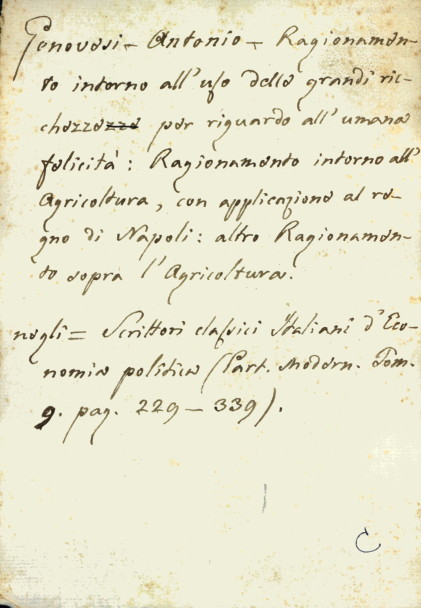 Genovesi - Antonio - Ragionamen-
to intorno all'uso delle grandi ric-
chezze per riguardo all'umana
felicità: Ragionamento intorno all'
Agricoltura, con applicazione al re-
gno di Napoli: altro Ragionamen-
to sopra l'Agricoltura.
negli = Scrittori classici Italiani d'Eco-
nomia politica (Part. Modern. Tom.
9. pag. 229 - 339).
C